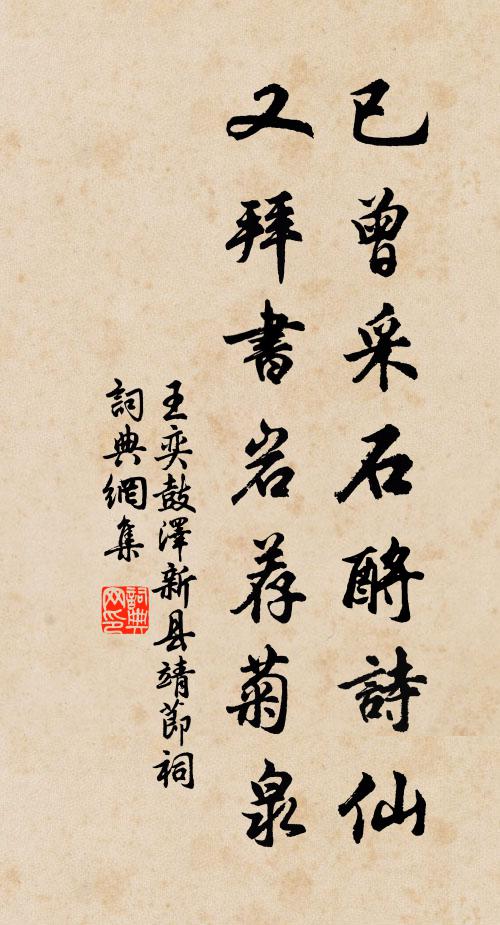 已曾采石酹詩仙
又拜書岩荐菊泉
王奕鼓澤新县靖節祠
詞典網集
詞典网印